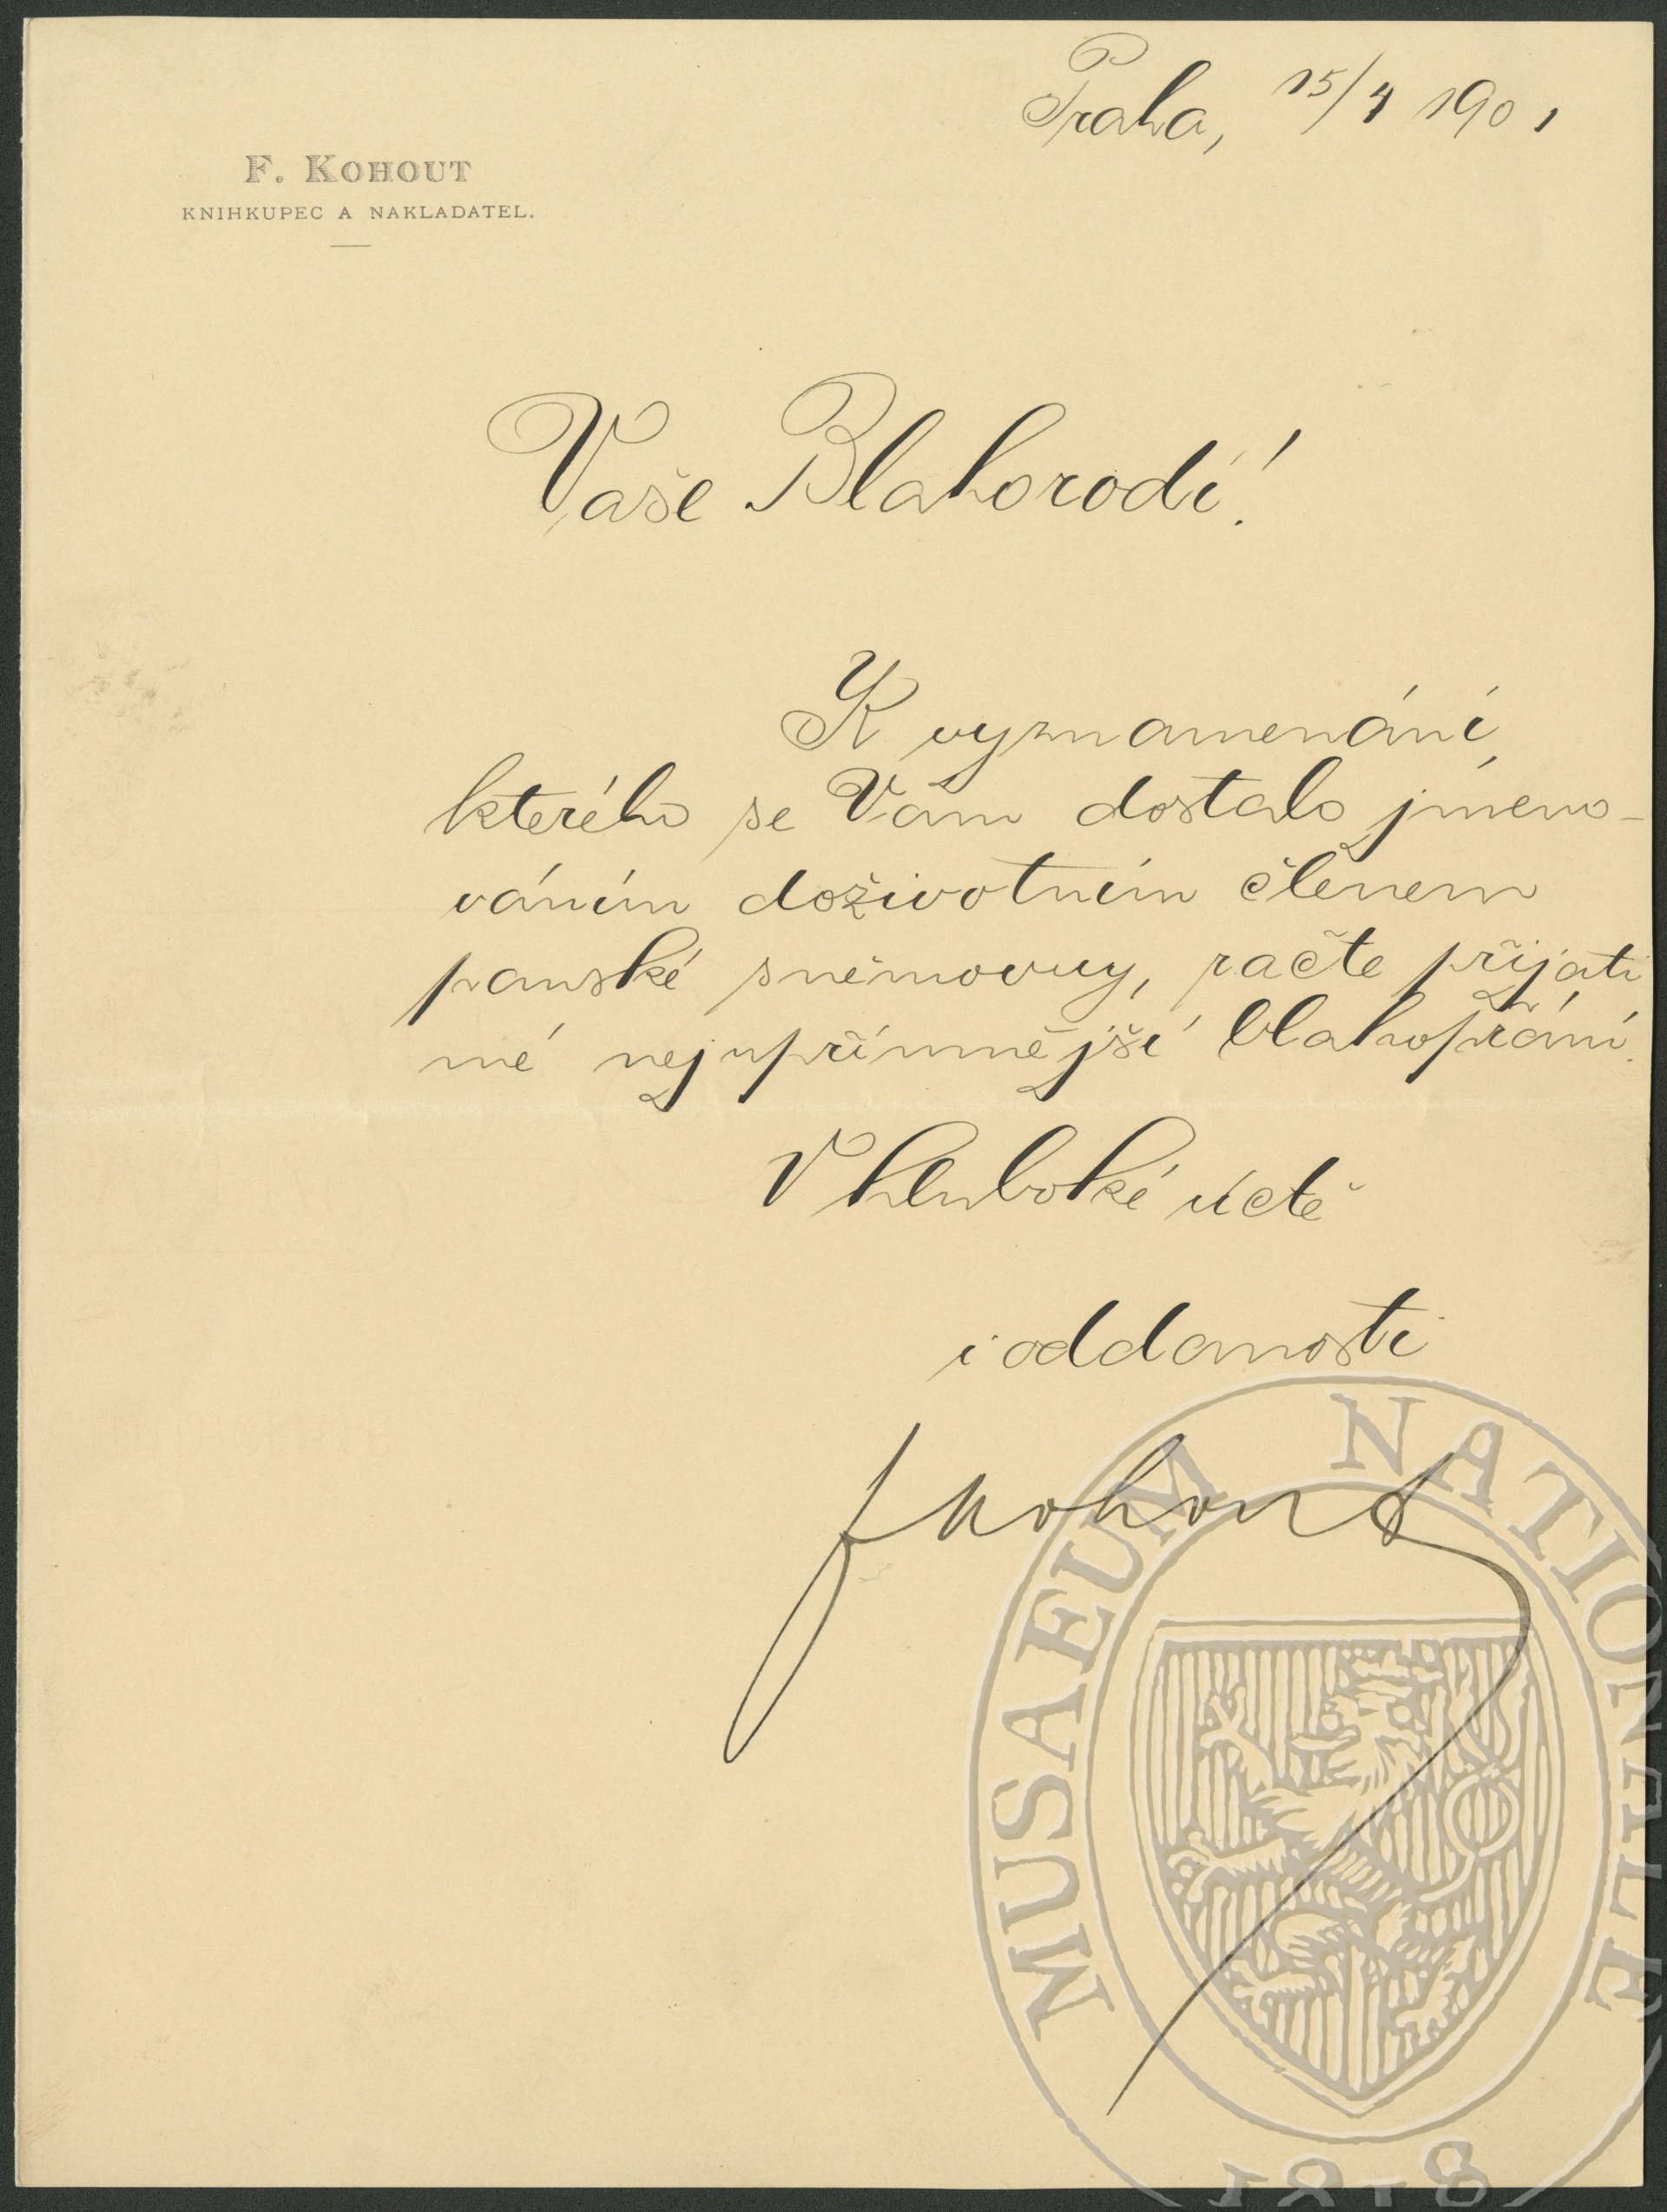 Praha, 15/4 1901
F. KOHOUT
KNIHKUPEC A NAKLADATEL.
Vaše Blahorodí!
K vyznamenání,
kterého se Vám dostalo jmeno-
váním doživotním členem
panské sněmovny, račte přijati
mé nejupřímnější blahopřání.
V hluboké úctě
i oddanosti
FKohout
MUSAEUM NATIONALE
1818